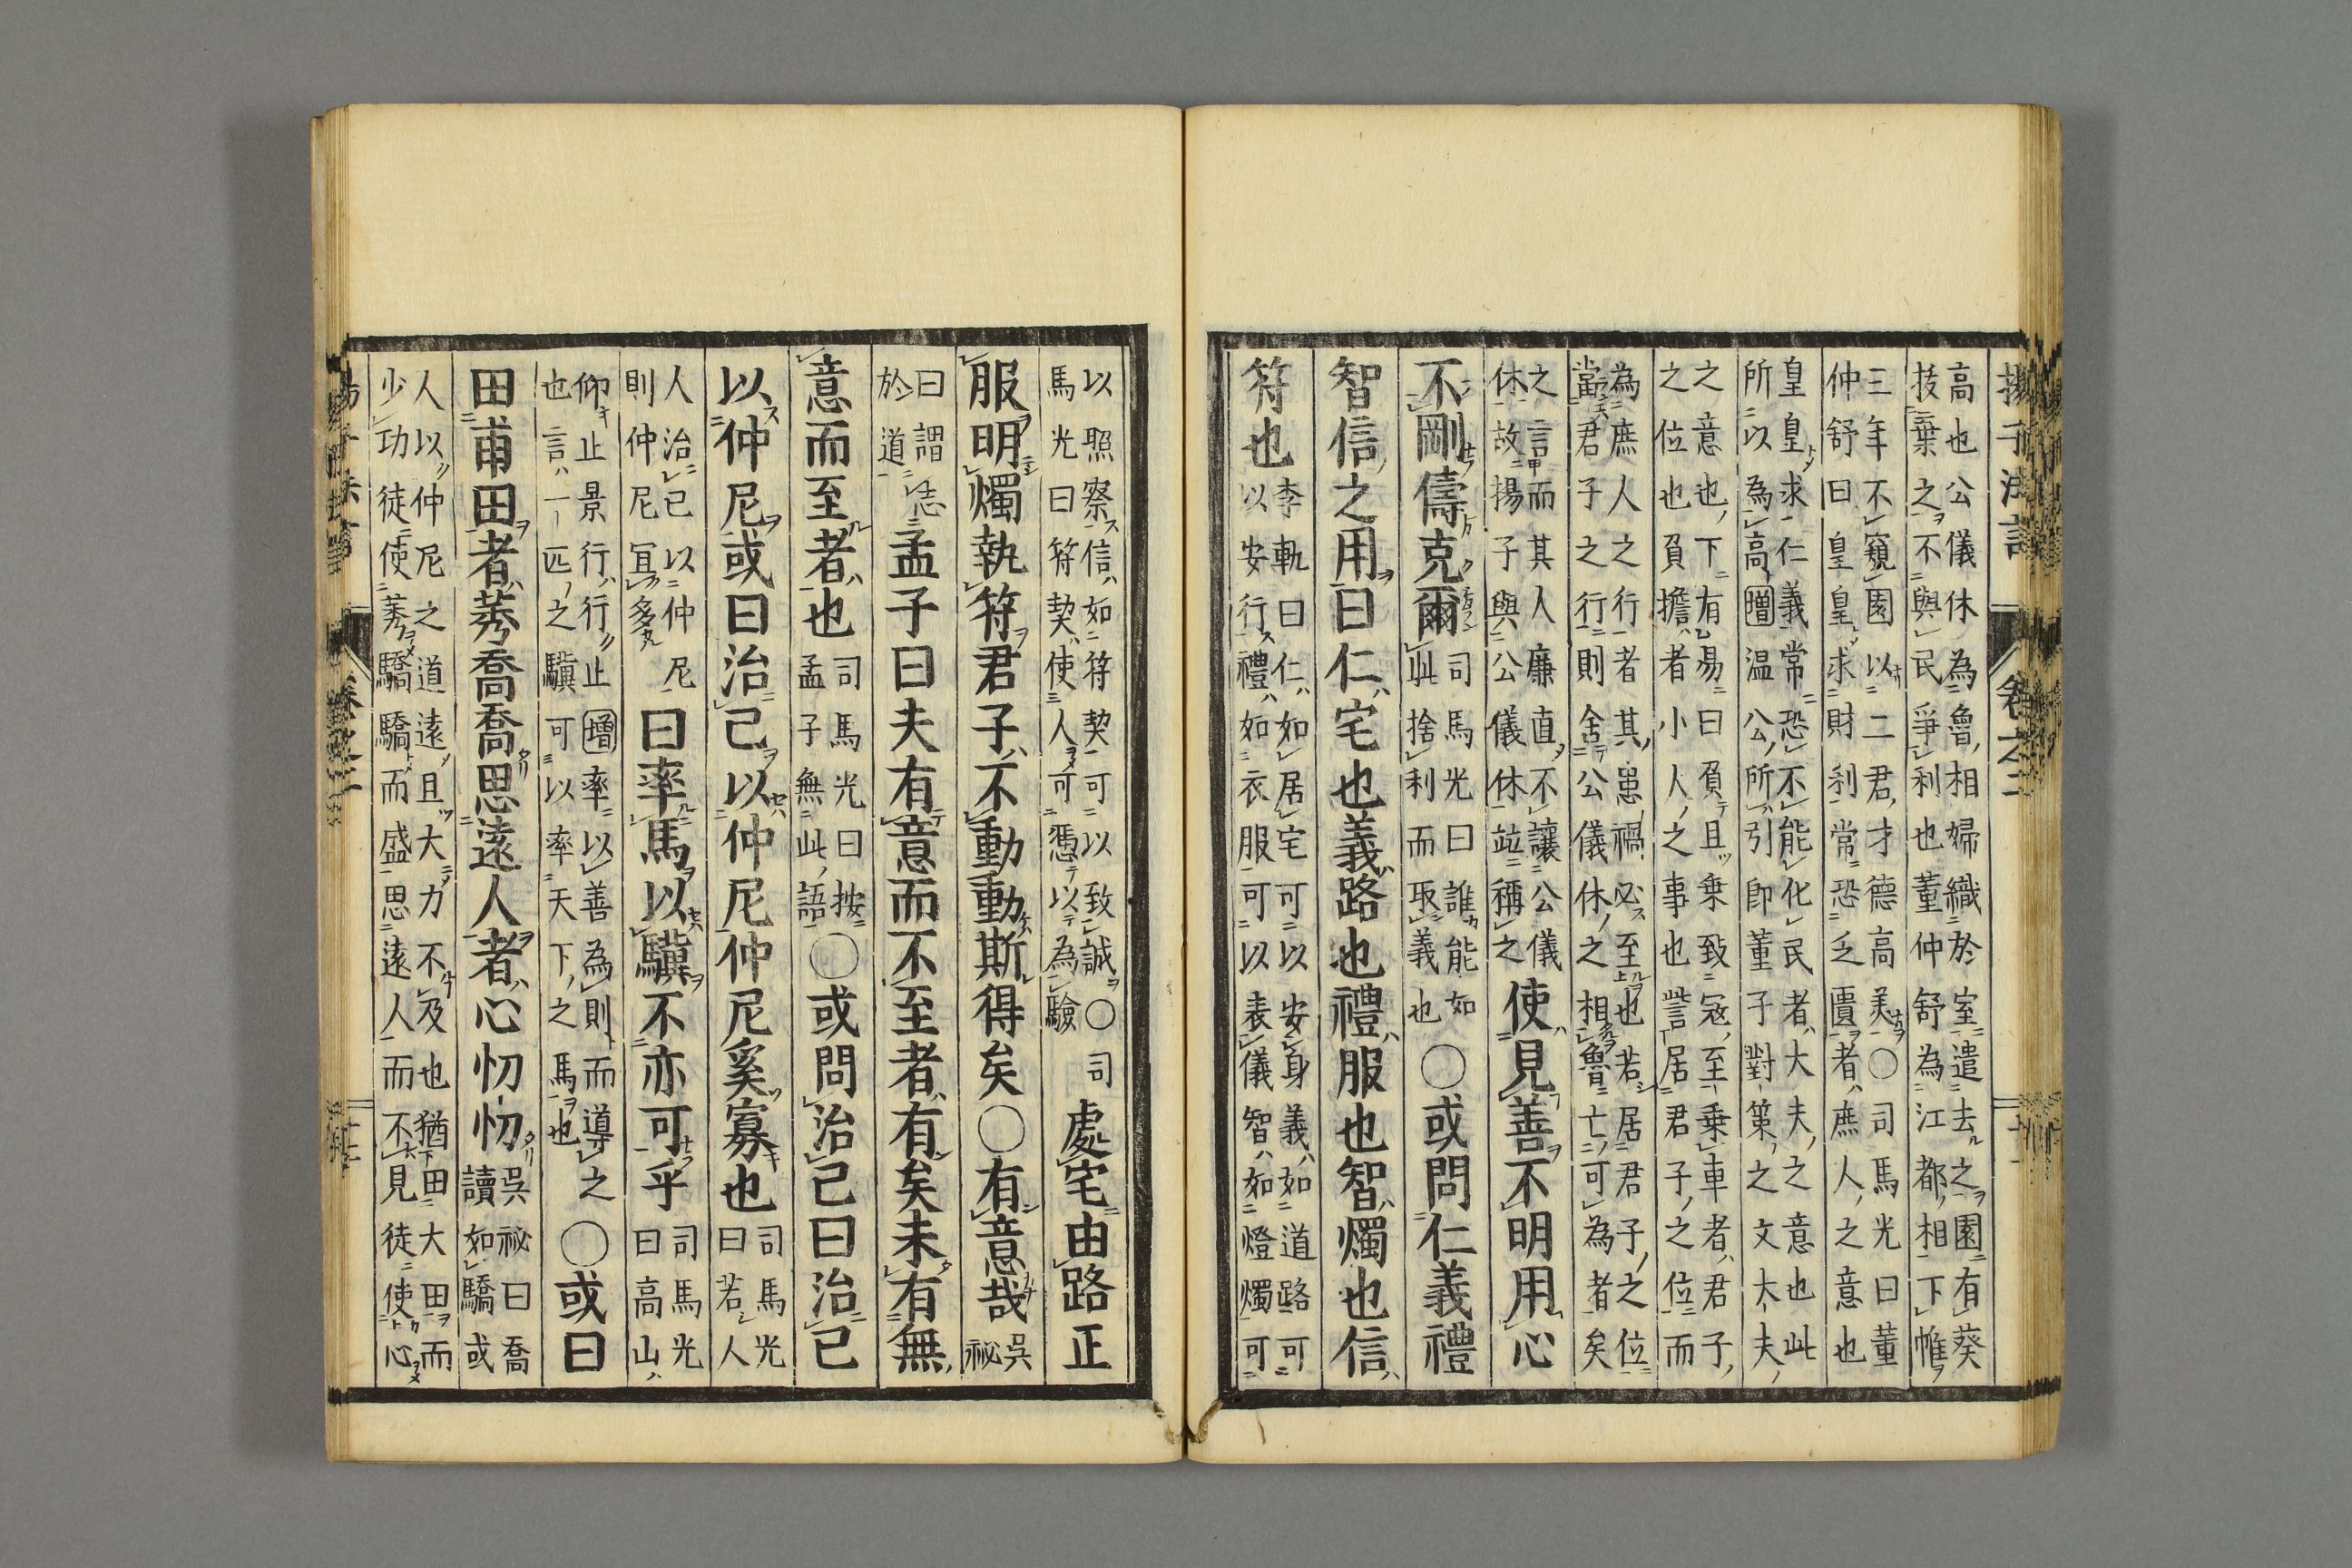 揚子法言 卷之二
高也公儀休為魯相婦織於室遣去之園有葵
技棄之不與民爭利也董仲舒為江都相下帷
三年不窺園以二君才德高美○司馬光曰董
仲舒曰皇皇求財利常恐乏匱者庶人之意也
皇皇求仁義常恐不能化民者大夫之意也此
所以為高增温公所引即董子對策之文大夫
之意也下有易曰負且乗致冦至乗車者君子
之位也負擔者小人之事也誓居君子之位而
為庶人之行者其患禍必至也若居君子之位
當君子之行則舍公儀休之相魯亡可為者矣
之言而其人廉直不讓公儀
休故揚子與公儀休竝稱之
使見善不明用心
不剛儔克爾
司馬光曰誰能如
此捨利而取義也
○或問仁義禮
智信之用曰仁宅也義路也禮服也智燭也信
符也
李軌曰仁如居宅可以安身義如道路可
以安行禮如衣服可以表儀智如燈燭可
以照察信如符契可以致誠○司
馬光曰符契使人可憑以為驗
處宅由路正
服明燭執符君子不動動斯得矣○有意哉
呉
祕
曰謂志
於道
孟子曰夫有意而不至者有矣未有無
意而至者也
司馬光曰按
孟子無此語
○或問治己曰治己
以仲尼或曰治己以仲尼仲尼奚寡也
司馬光
曰若人
人治己以仲尼
則仲尼冝多
曰率馬以驥不亦可乎
司馬光
曰高山
仰止景行行止增率以善為則而導之
也言一匹之驥可以率天下之馬也
○或曰
田甫田者莠喬喬思遠人者心忉忉
呉祕曰喬
讀如驕或
人以仲尼之道遠且大力不及也猶田大田而
少功徒使莠驕驕而盛思遠人而不見徒使心